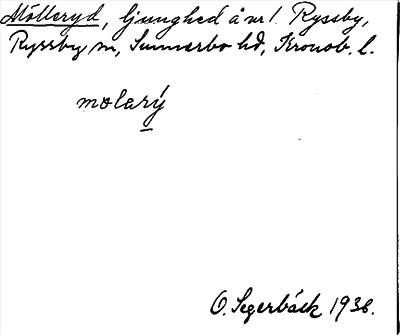 Mölleryd, ljunghed å nr 1. Ryssby,
Ryssby sn, Sunnerbo hd, Kronob. l.
molarý
O. Segerbäck 1938.